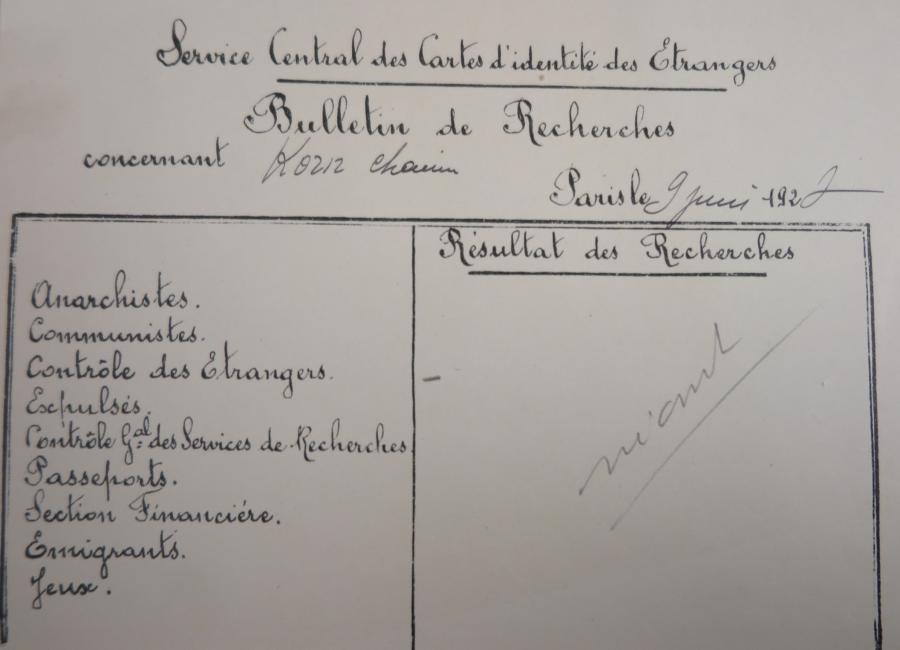 Service Central des Cartes d'identité des Etrangers
Bulletin de Recherches
concernant Korn Chaim
Paris le 9 juin 1927
Résultat des Recherches
Anarchistes.
Communistes.
Contrôle des Etrangers.
Expulsés.
Contrôle Gal des Services de Recherches
Passeports.
Section Financiére.
Emigrants.
Jeux.
néant